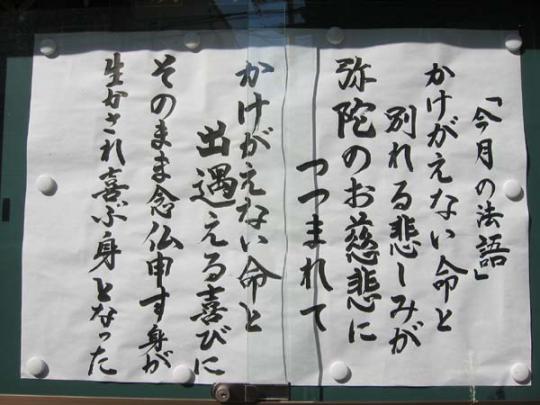 「今月の法語」
かけがえない命と
別れる悲しみが
弥陀のお慈悲に
つつまれて
かけがえない命と
出遇える喜びに
そのまま念仏申す身が
生かされ喜ぶ身となった